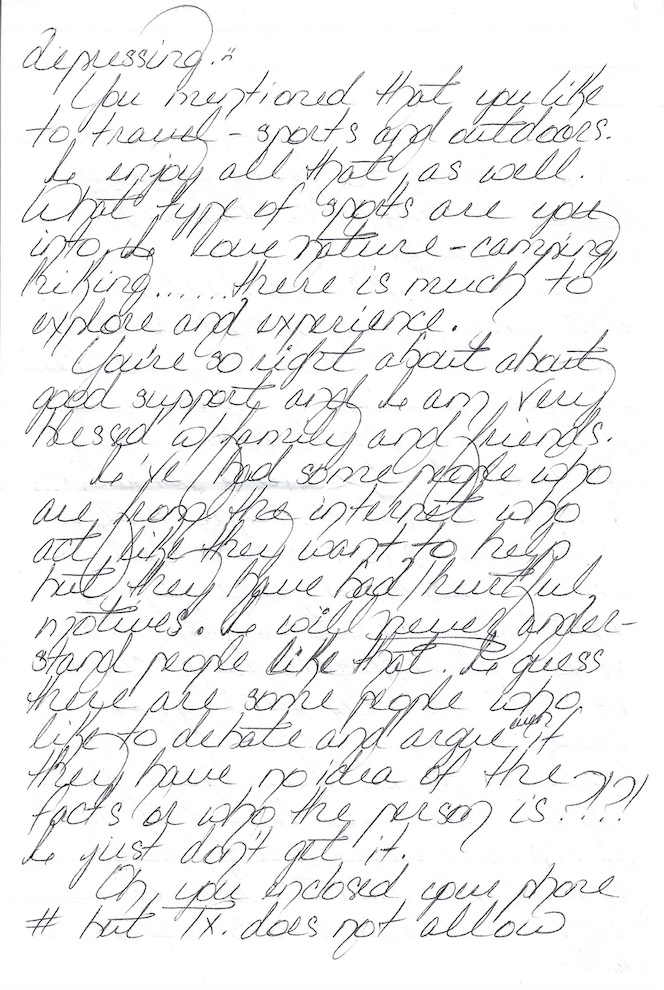 depressing."
You mentioned that you like
to travel - sports and outdoors.
I enjoy all that, as well.
What type of sports are you
into, I love nature - camping,
hiking......there is much to
explore and experience.
You're so right about about
good support and I am very
blessed w/ family and friends.
I've had some people who
are from the internet who
act like they want to help
but they have had hurtful
motives. I will never under-
stand people like that. I guess
there are some people who
like to debate and argue even if
they have no idea of the
facts or who the person is?!?!
I just don't get it.
Oh, you enclosed your phone
# but Tx. does not allow